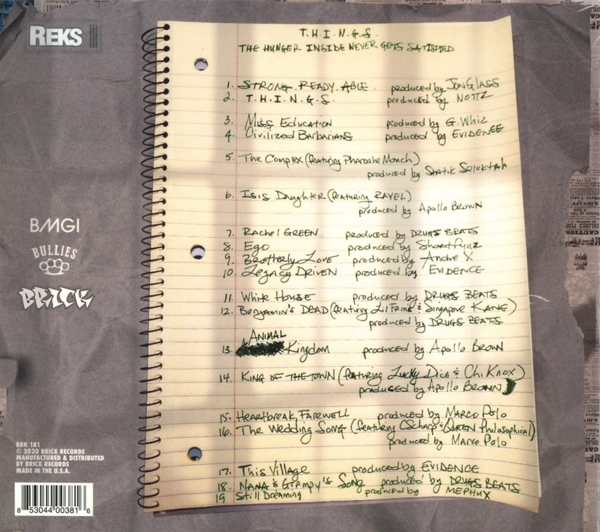 REKS
T.H.I.N.G.S.
THE HUNGER INSIDE NEVER GETS SATISFIED
1. STRONG. READY. ABLE. produced by JonGlass
2. T.H.I.N.G.S. produced by NOTTZ
3. Miss Education produced by G. Whiz
4. Civilized Barbarians produced by EVIDENCE
5. The Complex (featuring Pharoahe Monch)
produced by Statik Selektah
6. Isis Daughter (featuring RAVEL)
produced by Apollo Brown
7. Rachel GREEN produced by DRUGS BEATS
8. Ego produced by Shortfyuz
9. Brotherly Love produced by Andre X
10. Legacy DRIVEN produced by EVIDENCE
11. White House produced by DRUGS BEATS
12. Benjamin's DEAD (featuring Lil Fame & Singapore KANE)
produced by DRUGS BEATS
ANIMAL
13. Kingdom produced by Apollo Brown
14. KING OF THE TOWN (featuring Lucky Dice & Chi Knox)
produced by Apollo BROWN
15. Heartbreak FAREWELL produced by MARCO POLO
16. The Wedding Song (featuring CSharp & QUEEN Philosophical)
produced by Marco Polo
17. This Village produced by EVIDENCE
18. NANA & Grampy's Song produced by DRUGS BEATS
19 Still Dreaming produced by MEPHUX
BMGI
BULLIES
BRICK
BRK 181
© 2020 BRICK RECORDS
MANUFACTURED & DISTRIBUTED
BY BRICK RECORDS
MADE IN THE U.S.A.
8 53044 00381 6